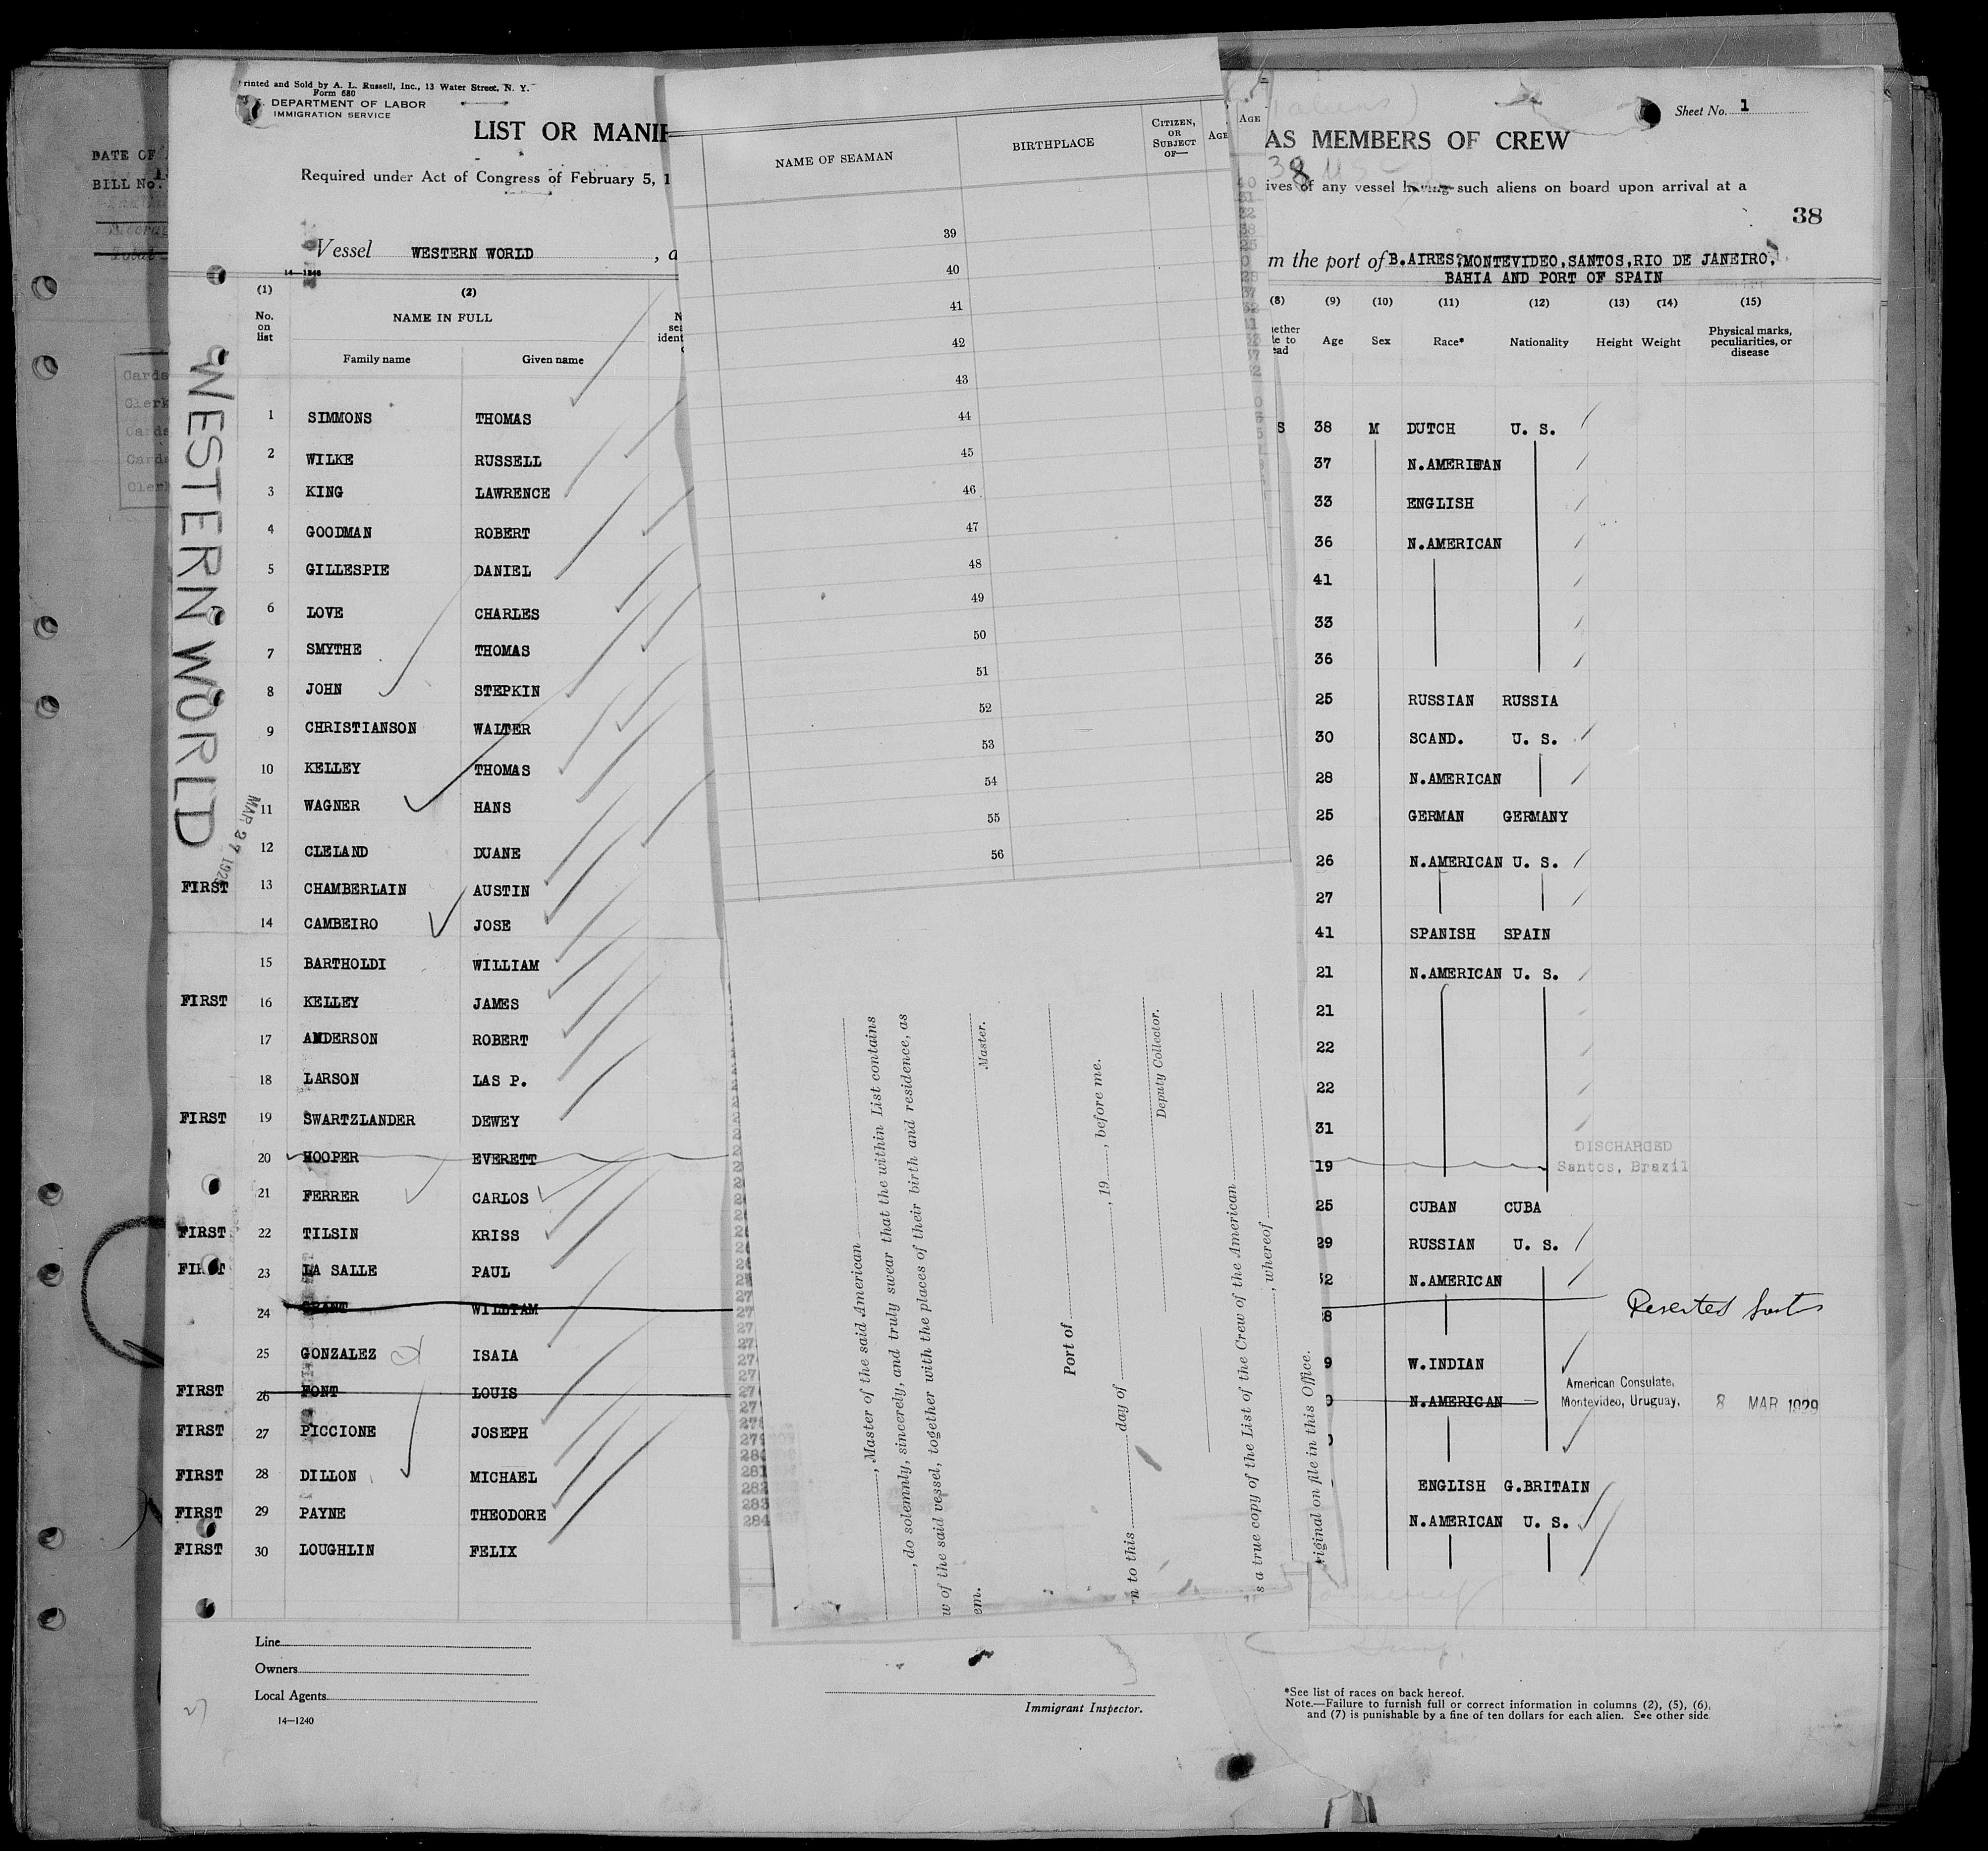 Printed and Sold by A. L. Russell, Inc., 13 Water Street, N. Y.
Form 680
DEPARTMENT OF LABOR
IMMIGRATION SERVICE
LIST OR MANIF
AS MEMBERS OF CREW
Sheet No. 1
Required under Act of Congress of February 5, 1
ives of any vessel having such aliens on board upon arrival at a
38
38
Vessel WESTERN WORLD , a
m the port of B.AIRES,MONTEVIDEO,SANTOS,RIO DE JANEIRO,
BAHIA AND PORT OF SPAIN
14—1240
DATE OF
BILL No.
Total
Cards
Clerk
Cards
Cards
Clerk
WESTERN WORLD
MAR 27 1929
(1) (2) (8) (9) (10) (11) (12) (13) (14) (15)
No. on list
NAME IN FULL
Family name Given name
Age Sex Race* Nationality Height Weight Physical marks, peculiarities, or disease
1 SIMMONS THOMAS S 38 M DUTCH U. S.
2 WILKE RUSSELL 37 N.AMERICAN
3 KING LAWRENCE 33 ENGLISH
4 GOODMAN ROBERT 36 N.AMERICAN
5 GILLESPIE DANIEL 41
6 LOVE CHARLES 33
7 SMYTHE THOMAS 36
8 JOHN STEPKIN 25 RUSSIAN RUSSIA
9 CHRISTIANSON WALTER 30 SCAND. U. S.
10 KELLEY THOMAS 28 N.AMERICAN
11 WAGNER HANS 25 GERMAN GERMANY
12 CLELAND DUANE 26 N.AMERICAN U. S.
FIRST 13 CHAMBERLAIN AUSTIN 27
14 CAMBEIRO JOSE 41 SPANISH SPAIN
15 BARTHOLDI WILLIAM 21 N.AMERICAN U. S.
FIRST 16 KELLEY JAMES 21
17 ANDERSON ROBERT 22
18 LARSON LAS P. 22
FIRST 19 SWARTZLANDER DEWEY 31
20 HOOPER EVERETT 19 DISCHARGED Santos, Brazil
21 FERRER CARLOS 25 CUBAN CUBA
FIRST 22 TILSIN KRISS 29 RUSSIAN U. S.
FIRST 23 LA SALLE PAUL 2 N.AMERICAN
24 GRANT WILLIAM 8 Deserted Santos
25 GONZALEZ ISAIA 9 W.INDIAN
FIRST 26 FONT LOUIS N.AMERICAN American Consulate, Montevideo, Uruguay, 8 MAR 1929
FIRST 27 PICCIONE JOSEPH
FIRST 28 DILLON MICHAEL ENGLISH G.BRITAIN
FIRST 29 PAYNE THEODORE N.AMERICAN U. S.
FIRST 30 LOUGHLIN FELIX
Line
Owners
Local Agents
14—1240
Immigrant Inspector.
*See list of races on back hereof.
Note.—Failure to furnish full or correct information in columns (2), (5), (6),
and (7) is punishable by a fine of ten dollars for each alien. See other side
NAME OF SEAMAN BIRTHPLACE CITIZEN, OR SUBJECT OF— AGE AGE
39
40
41
42
43
44
45
46
47
48
49
50
51
52
53
54
55
56
, Master of the said American
, do solemnly, sincerely, and truly swear that the within List contains
w of the said vessel, together with the places of their birth and residence, as
em.
Master.
Port of
rn to this day of , 19 , before me.
Deputy Collector.
s a true copy of the List of the Crew of the American
, whereof
riginal on file in this Office.
279
280
281
282
283
284